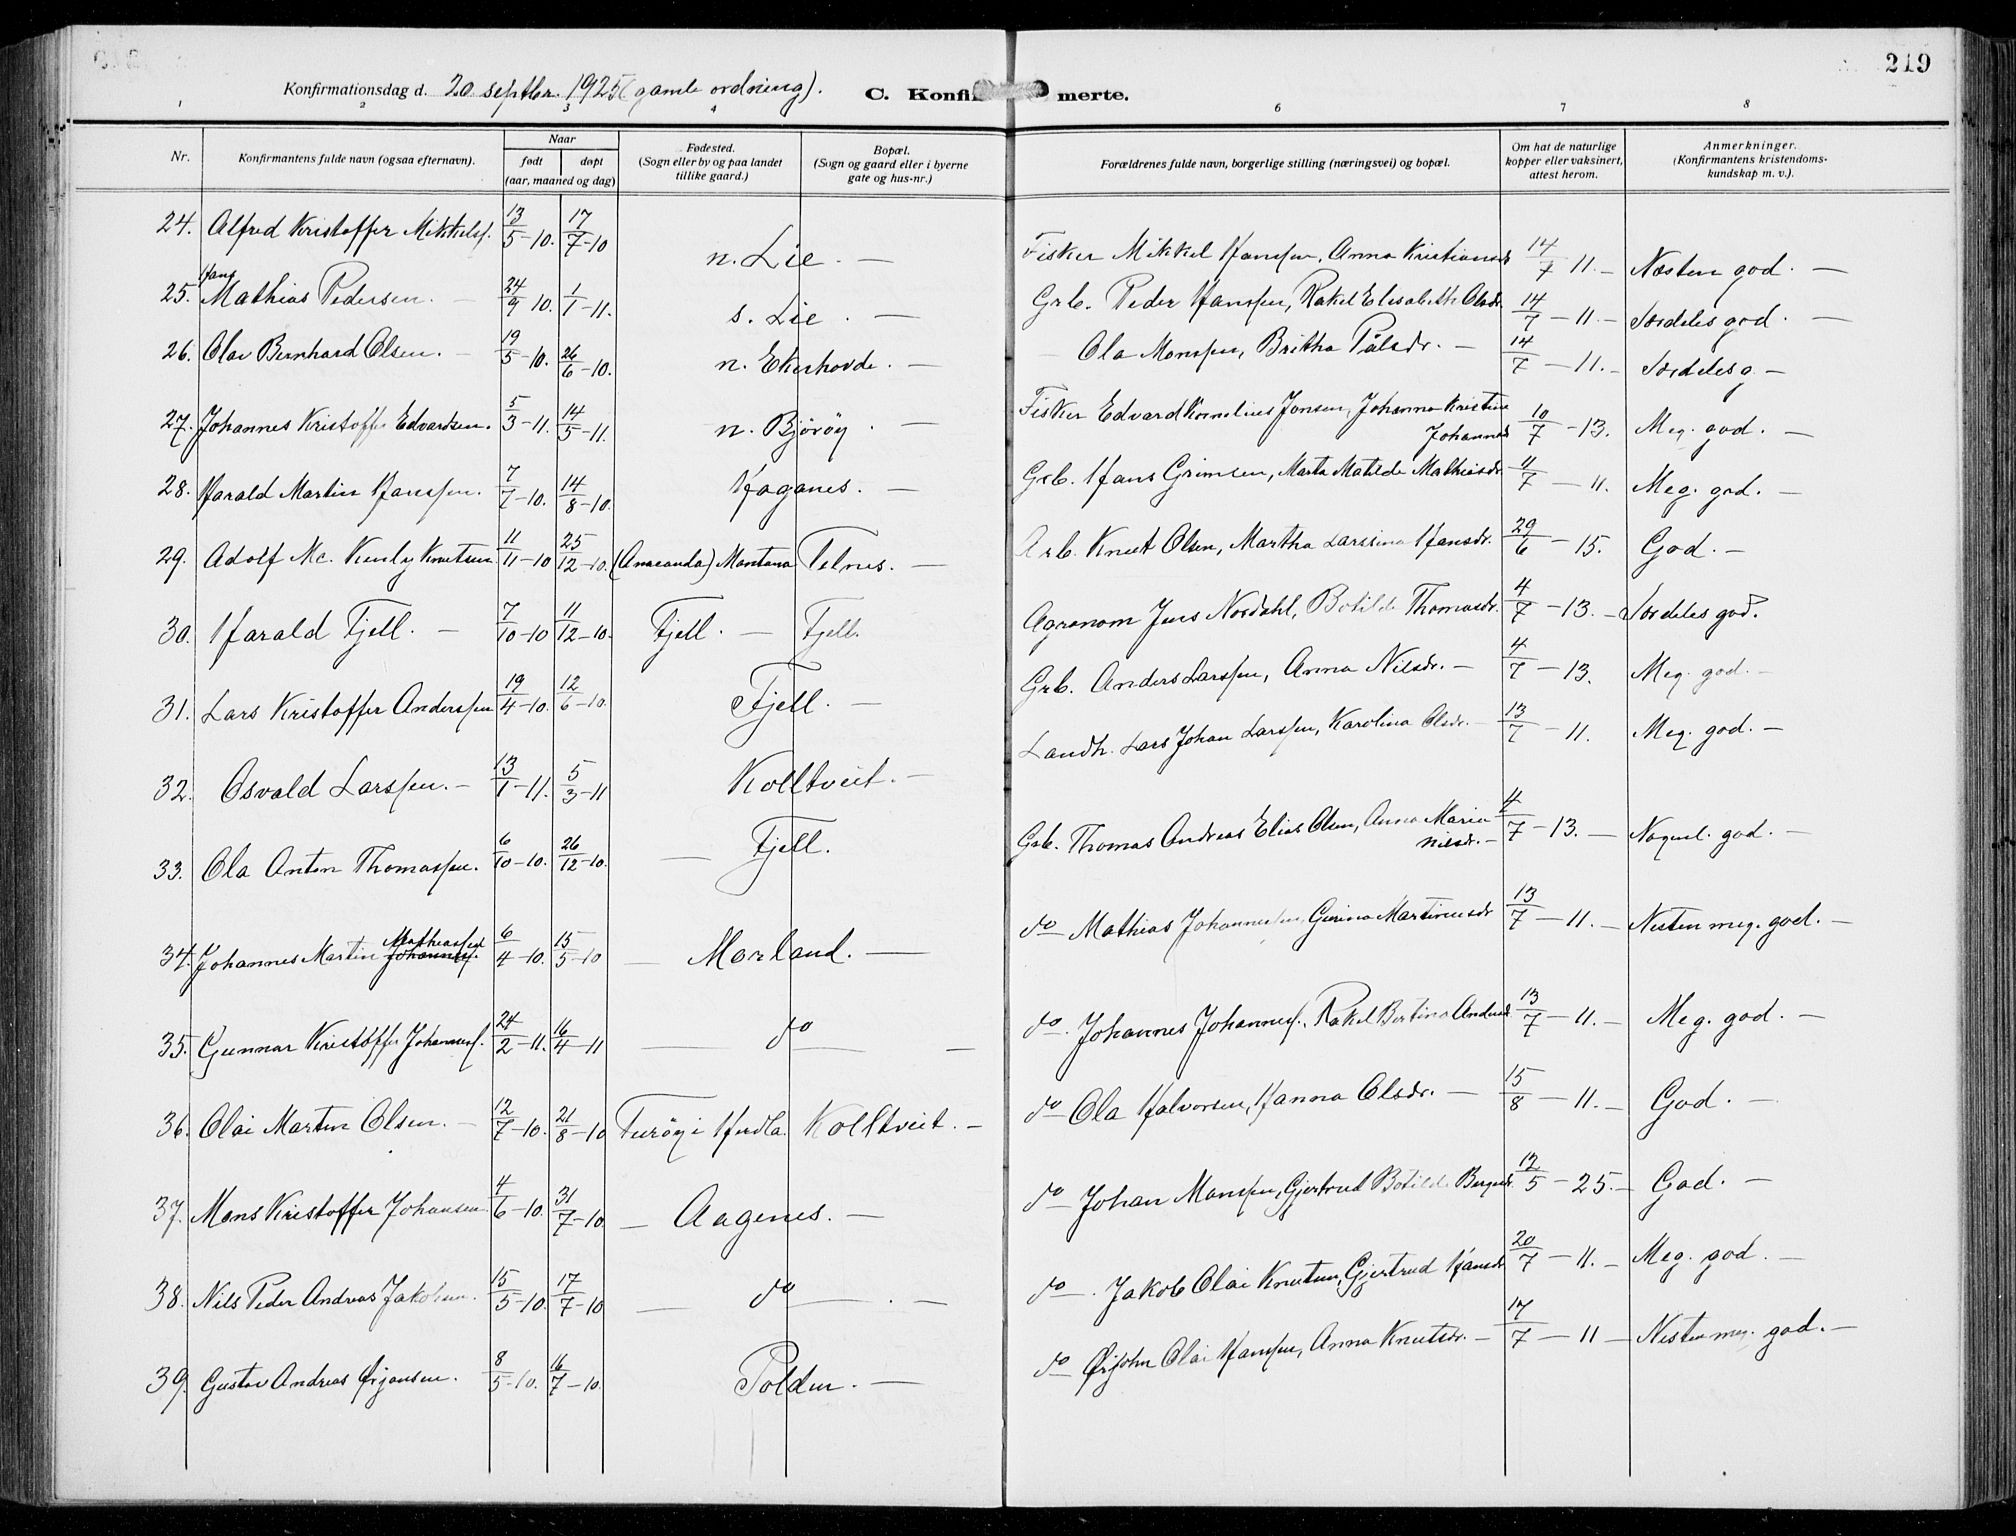 219
Konfirmationsdag d. 20 septbr. 1925 (gamle ordning).
C. Konfirmerte.
1 2 3 4 6 7 8
Nr. Konfirmantens fulde navn (ogsaa efternavn). Naar født døpt (aar, maaned og dag) Fødested. (Sogn eller by og paa landet tillike gaard.) Bopæl. (Sogn og gaard eller i byerne gate og hus-nr.) Forældrenes fulde navn, borgerlige stilling (næringsvei) og bopæl. Om hat de naturlige kopper eller vaksinert, attest herom. Anmerkninger. (Konfirmantens kristendomskundskap m. v.).
24. Alfred Kristoffer Mikkels. 13/5-10. 17/7-10 n. Lie. — Fisker Mikkel Hanssen, Anna Kristiansdr 14/7 11. — Næsten god. —
25. Hans Mathias Pedersen. — 24/9 10. 1/1-11. s. Lie. — Grb. Peder Hanssen, Rakel Elisabeth Olsdr. 14/7 — 11. — Særdeles god. —
26. Olav Bernhard Olsen. — 19/5-10. 26/6-10. n. Ekerhovde. — Ola Monssen, Britha Pålsdr. — 14/7 — 11. — Særdeles g. —
27. Johannes Kristoffer Edvardsen. 5/3-11. 14/5-11. n. Bjørøy. — Fisker Edvard Kornelius Jonsen, Johanna Kristine Johannesdr 10/7 -13. Meg. god. —
28. Harald Martin Hanssen. 7/7-10. 14/8-10. Haganes. — Grb. Hans Grimsen, Marta Matilde Mathiasdr. 11/7 — 11. Meg. god. —
29. Adolf Mc. Kinly Knutsen 11/11-10 25/12-10. (Anaconda) Montana Telnes. — Arb. Knut Olsen, Martha Larsina Hansdr. 29/6 — 15. God. —
30. Harald Fjell. — 7/10-10 11/12-10. Fjell. — Fjell. Agronom Jens Nordahl, Botilde Thomasdr. 4/7 -13. — Særdeles god.
31. Lars Kristoffer Anderssen 19/4-10. 12/6-10. Fjell. — Grb. Anders Larssen, Anna Nilsdr. — 4/7 — 13. Meg. god. —
32. Osvald Larssen. — 13/1-11. 5/3-11 Kolltveit. — Landh. Lars Johan Larssen, Karolina Olsdr. — 13/7 — 11. Meg. god. —
33. Ola Anton Thomassen. 6/10-10. 26/12-10. — Fjell. Grb. Thomas Andreas Elias Olsen, Anna Maria Nilsdr. — 4/7 -13. — Noqul. god. —
34. Johannes Martin Johanness. Mathiassen 6/4-10. 15/5-10 — Morland. — do Mathias Johannessen, Gurina Martinusdr 13/7 — 11. — Nesten meg. god. —
35. Gunnar Kristoffer Johanness. 24/2-11. 16/4-11 — do — — do. Johannes Johanness., Rakel Bertina Andersdr 13/7 — 11. — Meg. god. —
36. Olai Martin Olsen. — 12/7-10. 21/8-10 Turøy i Herdla. Kolltveit. — do Ola Halvorsen, Hanna Olsdr. — 15/8 — 11. — God. —
37. Mons Kristoffer Johansen 4/6-10. 31/7-10. — Aagenes. — do Johan Monssen, Gjertrud Botilde 12/5 -25. — God. —
38. Nils Peder Andreas Jakobsen. 15/5-10. 17/7-10 — do — . — do. Jakob Olai Knutsen, Gjertrud Hansdr 20/7 — 11. — Meg. god. —
39. Gustav Andreas Ørjansen. 8/5-10. 16/7-10. Polden. — do Ørjohn Olai Hanssen, Anna Knutsdr. — 17/7 — 11 — Nesten meg. god. —